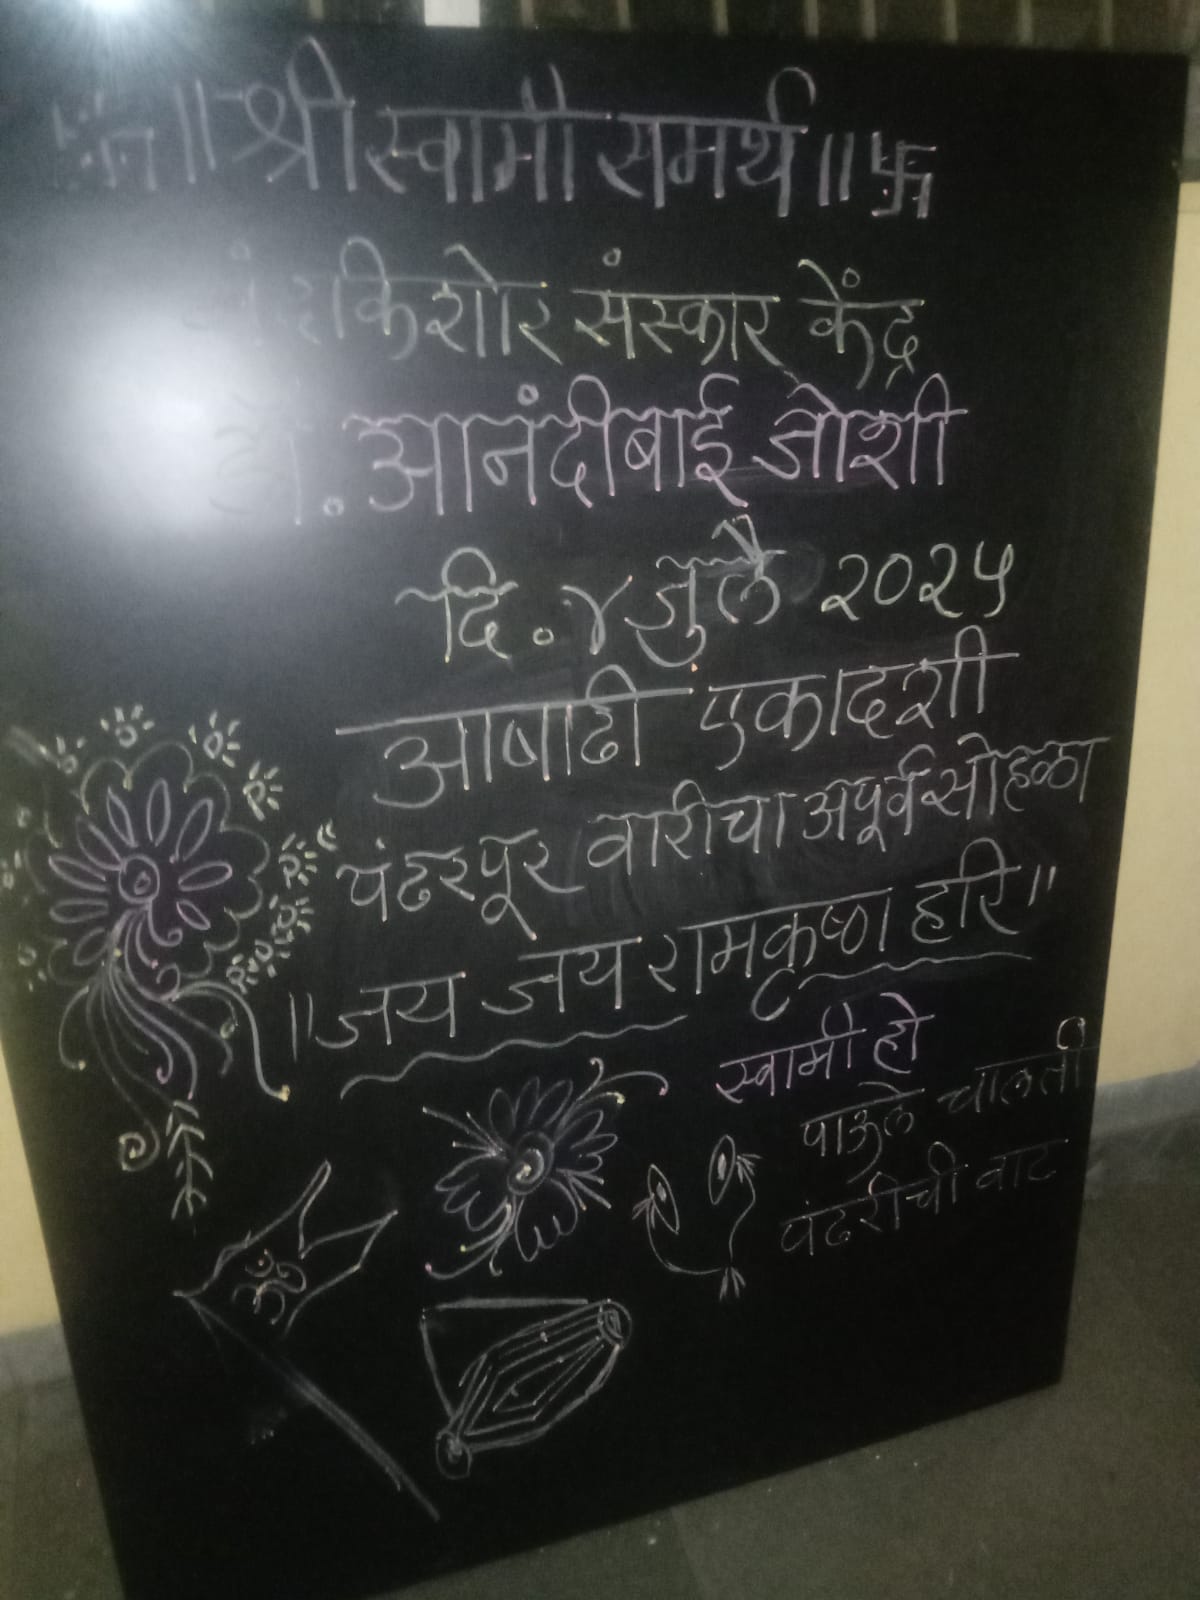 卐 ॥ श्री स्वामी समर्थ ॥ 卐
किशोर संस्कार केंद्र
आनंदीबाई जोशी
दि. ४ जुलै २०२५
आषाढी एकादशी
पंढरपूर वारीचा अपूर्व सोहळा
॥ जय जय रामकृष्ण हरि ॥
स्वामी हो
पाऊले चालती
पंढरीची वाट
ॐ